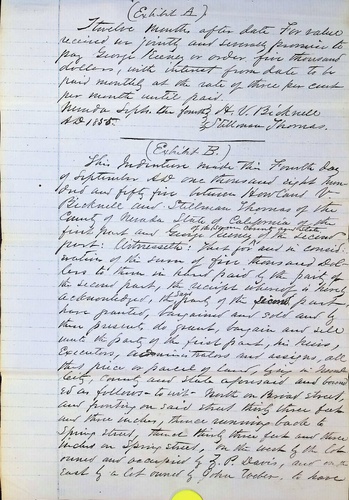 (Exhibit A.)
Twelve Months after date For value
received we jointly and severally promise to
pay George Keeney or order five thousand
dollars, with interest from date to be
paid monthly at the rate of three per cent
per month until paid.
Nevada Sept. the fourth H. V. Bicknell
AD 1855. Stillman Thomas.
(Exhibit B.)
This Indenture made this Fourth day
of September AD one thousand eight hun
dred and fifty five between V
Bicknell and Stillman Thomas of the
County of Nevada State of California of the
of the same County and State
first part and George Keeney of the second
part: Witnesseth: That for and in consid
eration of the sum of five thousand dol
lers to them in hand paid by the part of
the second part, the receipt whereof is hereby
acknowledged, the party of the second part
have granted, bargained and sold and by
these presents do grant, bargain and sell
unto the party of the first part, his heirs,
Executors, administrators and assigns, all
this piece or parcel of land, lying in Nevada
City, County and State aforesaid and bound
ed as follows - to wit - North on Broad street,
and fronting on said street thirty three feet
and three inches, thence running back to
Spring street, thence thirty three feet and three
inches on Spring street, on the west by the lot
owned and occupied by Z. P. Davis, and on the
east by a lot owned by John to have